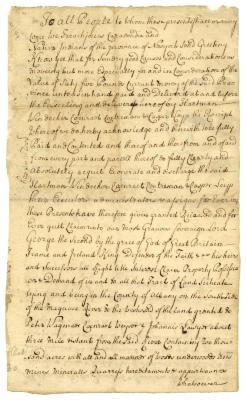 To all People to whom these presents shall or may
Come We
Native Indians of the province of New york Send Greeting
Know ye that for Sundry good Causes and Considerations
us moveing but more Especially for and in Consideration of the
Value of Sixty Pounds Current money of the said Province
to us in hand paid and Delivered at and before
the Ensealing and Delivery hereof by Hartman
Windecker Coenraet Contreman Casper the Receipt
whereof we do hereby acknowledge and therewith to be fully
Paid and Contented and thereof and therefrom and of and
from every part and parcell thereof do fully Clearly and
Absolutely acquit Exonerate and discharge the said
Hartman Windecker Coenraet Contreman Casper
their Executors administrators & assigns for Ever by
these Presents have therefore given granted Released and for
Ever quit Claim unto our most Gracious Sovereign Lord
George the Second by the grace of God of Great Britain
France and Ireland King Defender of the Faith &c his heirs
and Successors all Right title Interest Claim Property Possession
and Demand of us and to all that Tract of Land Scituate
lying and being in the County of Albany on the South Side
of the Maquase River the backside of the land granted to
Peter Wagenar Coenraet & Johannis Lawyer about
three Mile distant from the said River Containing two thou-
sand acres with all and all manner of woods underwoods trees
mines mineralls Quarreys hereditaments & appurtenances
whatsoever